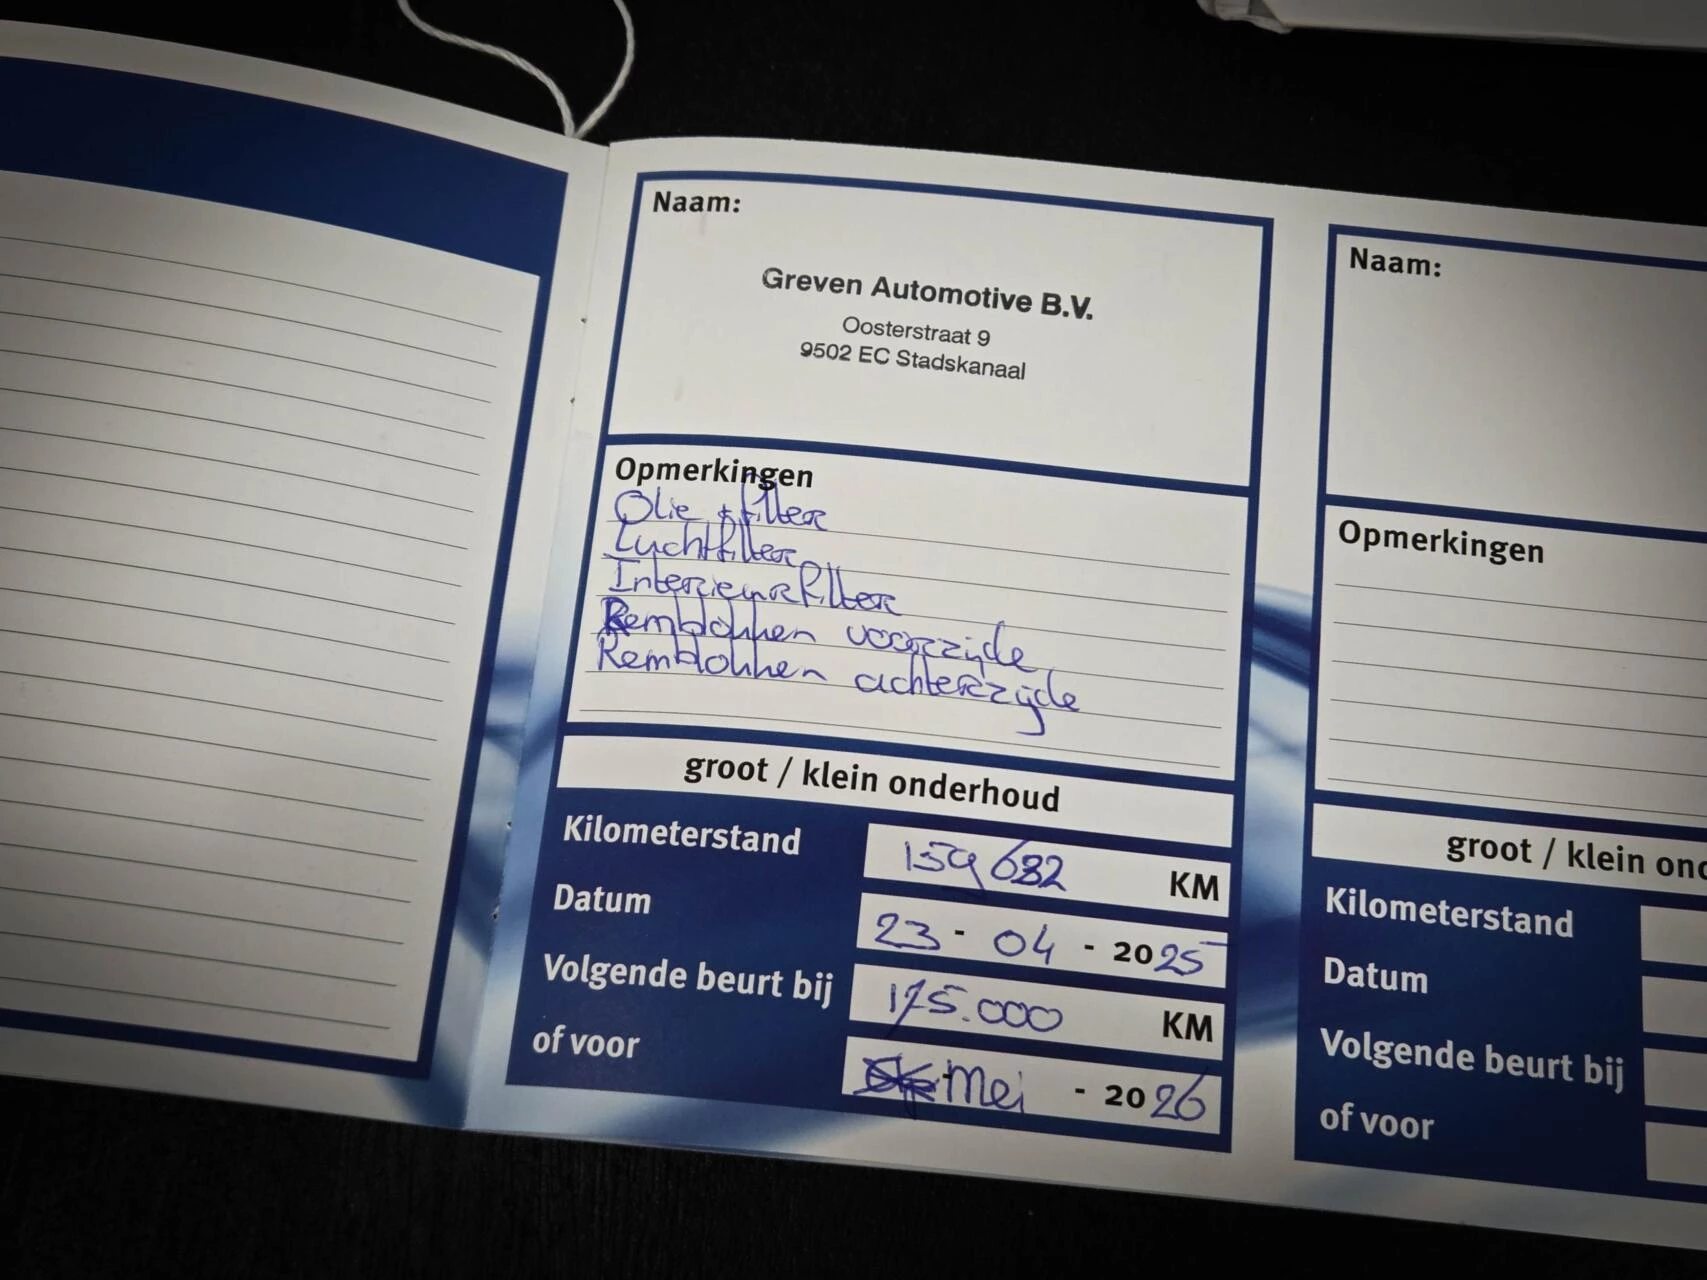 Naam:
Greven Automotive B.V.
Oosterstraat 9
9502 EC Stadskanaal
Opmerkingen
Olie + filter
Luchtfilter
Interieurfilter
Remblokken voorzijde
Remblokken achterzijde
groot / klein onderhoud
Kilometerstand 159632 KM
Datum 23 - 04 - 2025
Volgende beurt bij 175.000 KM
of voor Mei - 2026
Naam:
Opmerkingen
groot / klein
Kilometerstand
Datum
Volgende beurt bij
of voor